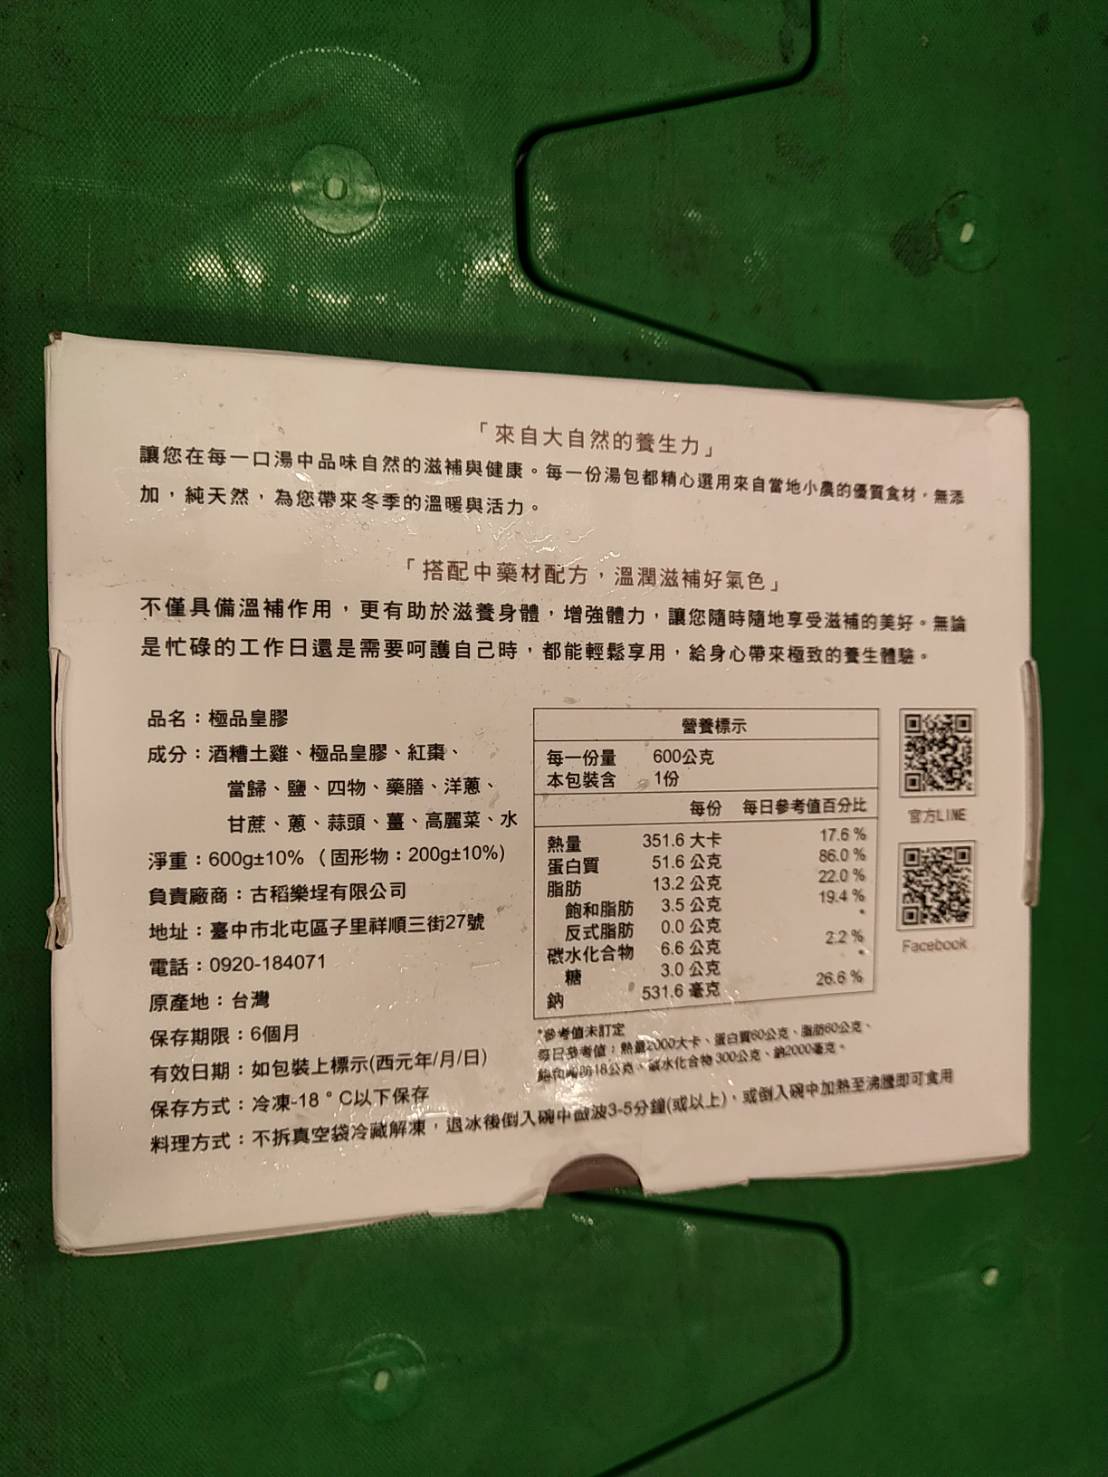 「來自大自然的養生力」
讓您在每一口湯中品味自然的滋補與健康。每一份湯包都精心選用來自當地小農的優質食材，無添
加，純天然，為您帶來冬季的溫暖與活力。
「搭配中藥材配方，溫潤滋補好氣色」
不僅具備溫補作用，更有助於滋養身體，增強體力，讓您隨時隨地享受滋補的美好。無論
是忙碌的工作日還是需要呵護自己時，都能輕鬆享用，給身心帶來極致的養生體驗。
品名：極品皇膠
成分：酒糟土雞、極品皇膠、紅棗、
當歸、鹽、四物、藥膳、洋蔥、
甘蔗、蔥、蒜頭、薑、高麗菜、水
淨重：600g±10% （固形物：200g±10%)
負責廠商：古稻樂埕有限公司
地址：臺中市北屯區子里祥順三街27號
電話：0920-184071
原產地：台灣
保存期限：6個月
有效日期：如包裝上標示(西元年/月/日)
保存方式：冷凍-18°C以下保存
料理方式：不拆真空袋冷藏解凍，退冰後倒入碗中微波3-5分鐘(或以上)，或倒入碗中加熱至沸騰即可食用
營養標示
每一份量 600公克
本包裝含 1份
每份 每日參考值百分比
熱量 351.6 大卡 17.6 %
蛋白質 51.6 公克 86.0 %
脂肪 13.2 公克 22.0 %
飽和脂肪 3.5 公克 19.4 %
反式脂肪 0.0 公克 *
碳水化合物 6.6 公克 2.2 %
糖 3.0 公克 *
鈉 531.6 毫克 26.6 %
*參考值未訂定
每日參考值：熱量2000大卡、蛋白質60公克、脂肪60公克、
飽和脂肪18公克、碳水化合物 300公克、鈉2000毫克。
官方LINE
Facebook